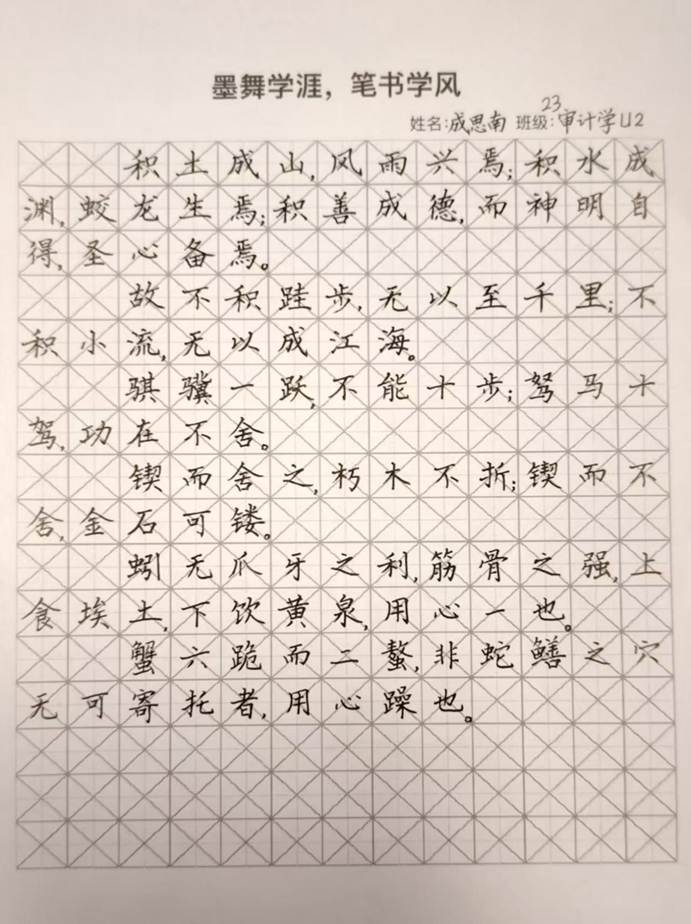 墨舞学涯，笔书学风
姓名:成思南 班级:23审计学U2
积土成山,风雨兴焉;积水成
渊,蛟龙生焉;积善成德,而神明自
得,圣心备焉。
故不积跬步,无以至千里;不
积小流,无以成江海。
骐骥一跃,不能十步;驽马十
驾,功在不舍。
锲而舍之,朽木不折;锲而不
舍,金石可镂。
蚓无爪牙之利,筋骨之强,上
食埃土,下饮黄泉,用心一也。
蟹六跪而二螯,非蛇鳝之穴
无可寄托者,用心躁也。